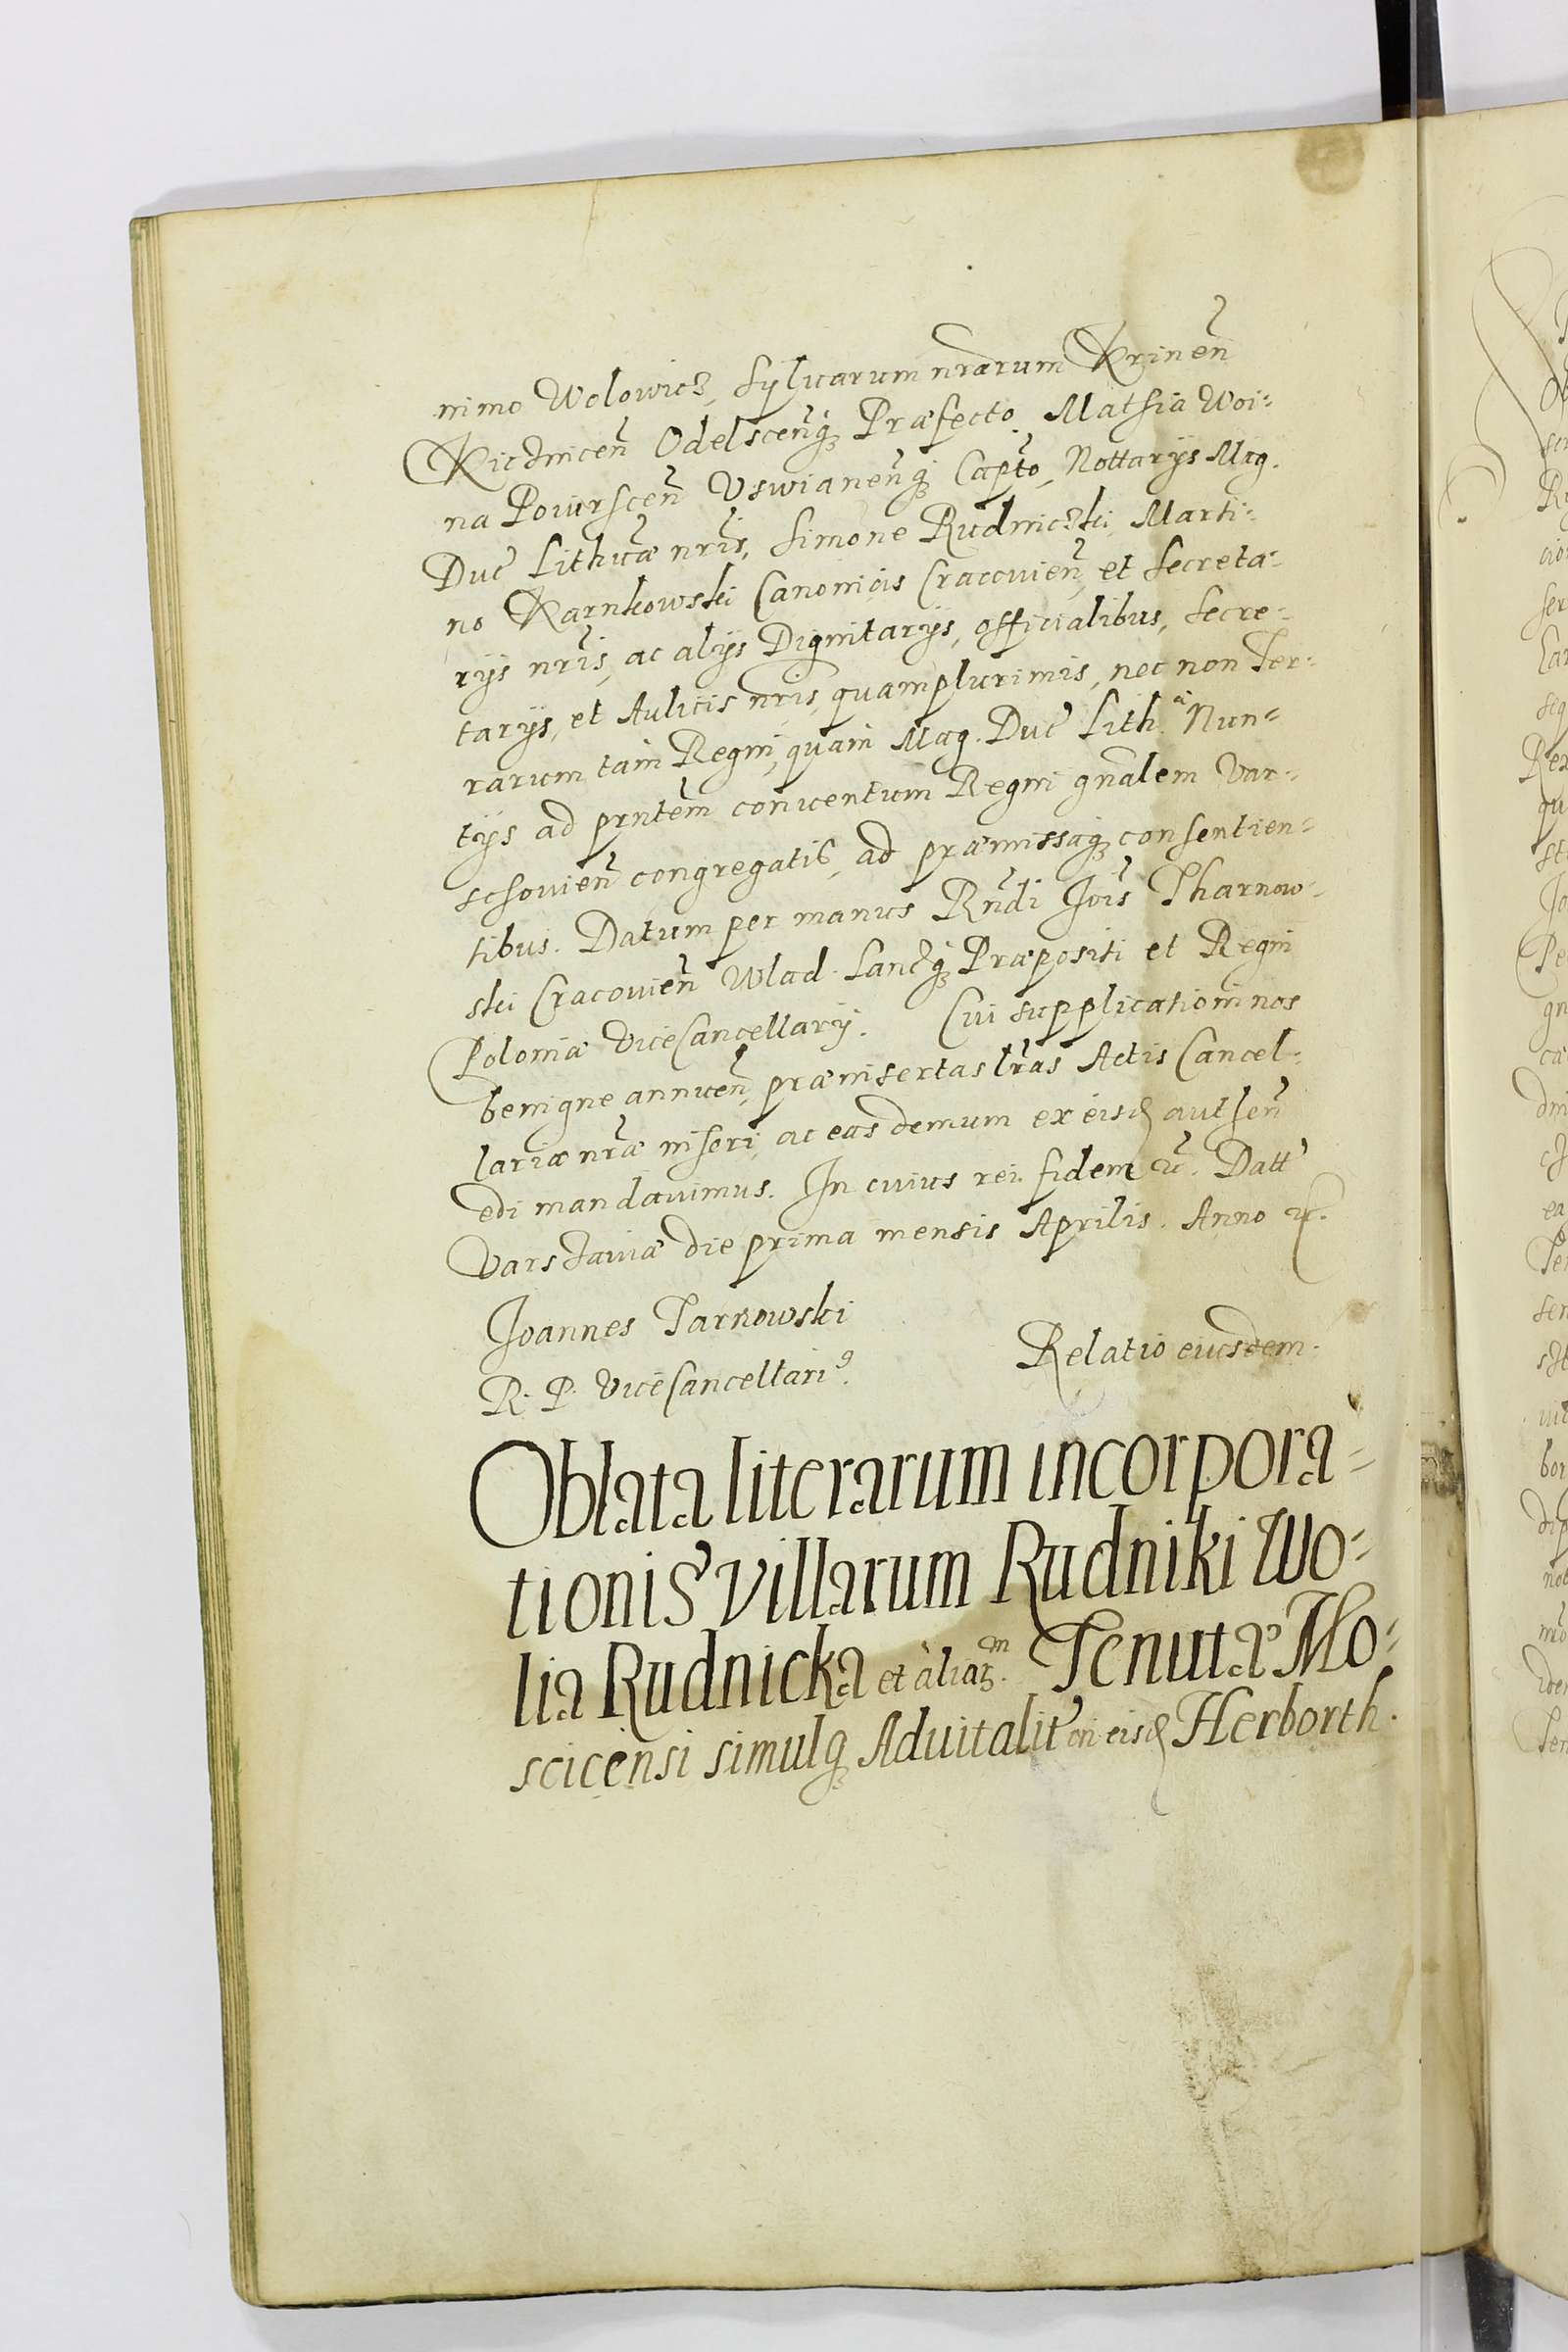 nimo Wolowicz, Syluarum nrarum Krinen̄
Kicznicen̄ Odelscenq̄ Præfecto. Mathia Woi=
na Powrscen̄ Vswianenq̄ Capto, Nottarijs Mag.
Duc̄ Lithuæ nris, Simone Rudniczki, Marti=
no Karnkowski Canonicis Cracouien̄, et Secreta=
rijs nris, ac alijs Dignitarijs, officialibus, Secre=
tarijs, et Aulicis nris, quamplurimis, nec non Ter=
rarum tam Regni, quam Mag. Duc̄ Lith. Nun=
tijs ad prntem conuentum Regni gnalem Var=
schouien̄ congregatis, ad præmissaq̄ consentien=
tibus. Datum per manus Rndi Jois Tharnow=
ski Cracouien̄ Wlad. Lancq̄ Præpositi et Regni
Poloniæ ViceCancellarij. Cui supplicationi nos
benigne annuen̄, præinsertas lras Actis Cancel=
lariæ nræ inseri, ac eas demum ex eisd authen̄
edi mandauimus. In cuius rei fidem &c. Datt
Varschauiæ die prima mensis Aprilis. Anno &c.
Joannes Tarnowski
R. P. ViceCancellari9.
Relatio eiusdem.
Oblata literarum incorpora=
tionis villarum Rudniki Wo=
lia Rudnicka et aliarm. Tenutæ Mo=
scicensi simulq̄ Aduitalit on eisd Herborth.